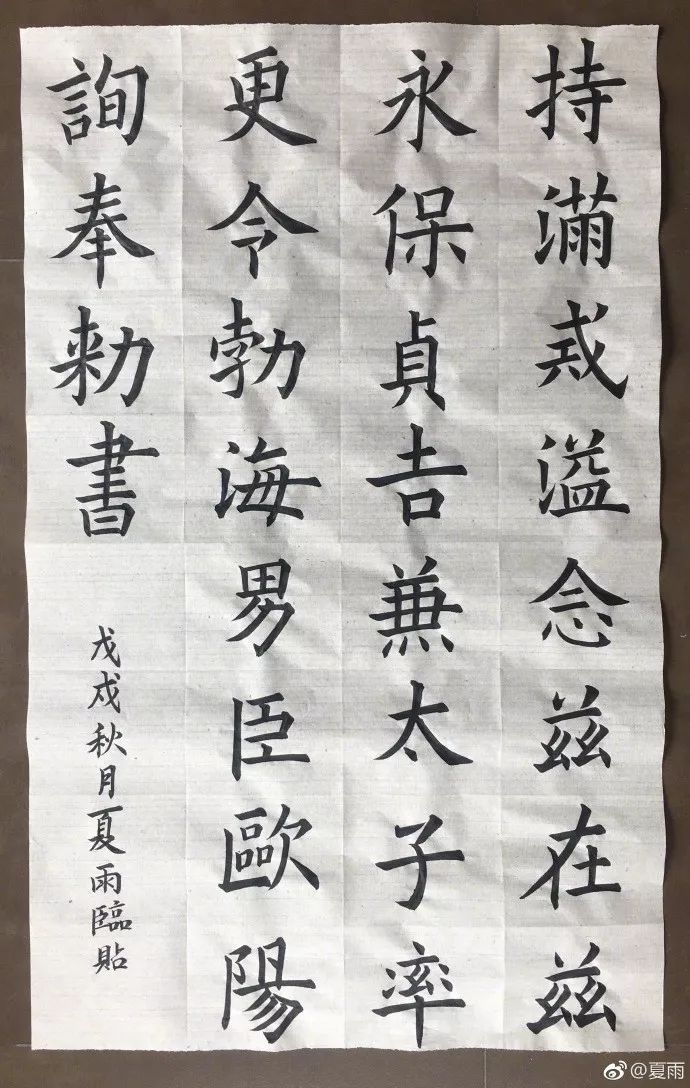 持滿戒溢念茲在茲
永保貞吉兼太子率
更令勃海男臣歐陽
詢奉勅書
戊戌秋月夏雨臨貼
@夏雨